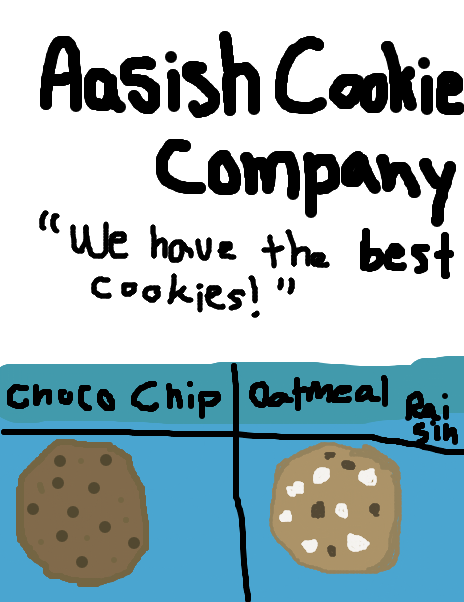 Aasish Cookie
Company
"We have the best
cookies!"
Choco Chip
Oatmeal Rai
sin